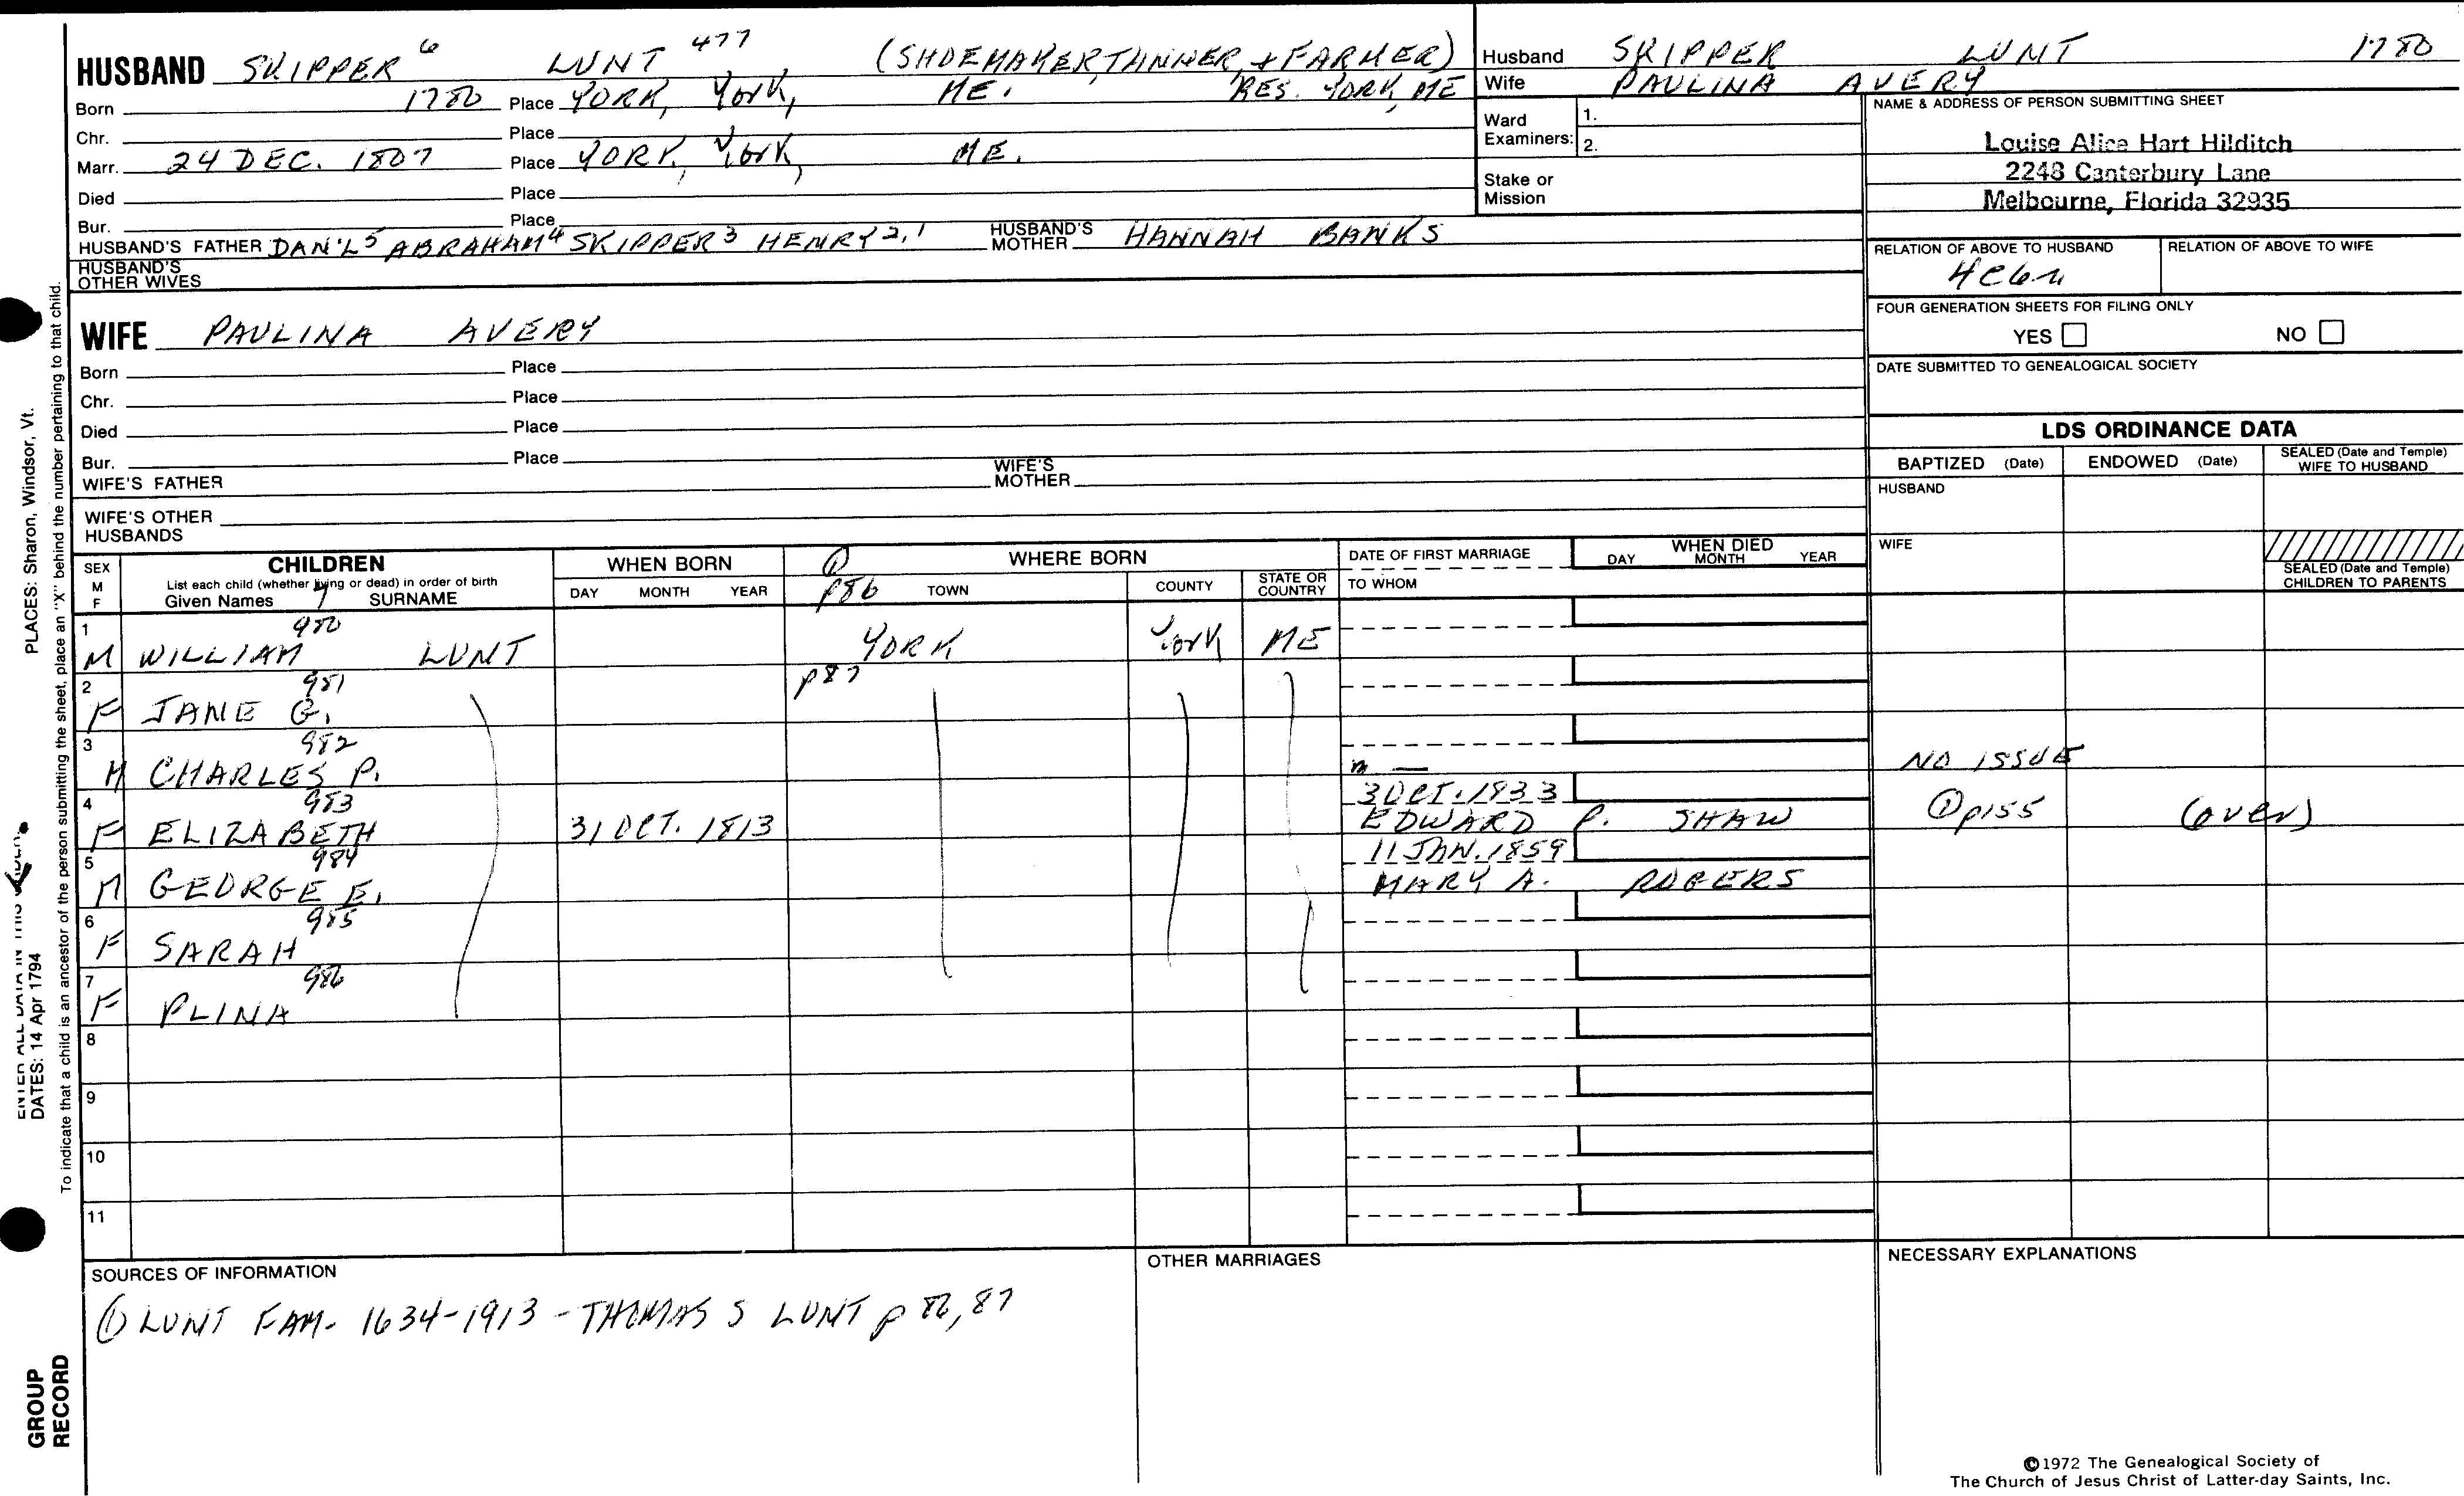 HUSBAND SKIPPER 6 LUNT 477 (SHOEMAKER, TANNER, + FARMER)
Born 1780 Place YORK, York, ME. RES. YORK, ME
Chr. Place
Marr. 24 DEC. 1807 Place YORK, York, ME.
Died Place
Bur. Place
HUSBAND'S FATHER DAN'L 5 ABRAHAM 4 SKIPPER 3 HENRY 2,1 HUSBAND'S MOTHER HANNAH BANKS
HUSBAND'S OTHER WIVES
WIFE PAULINA AVERY
Born Place
Chr. Place
Died Place
Bur. Place
WIFE'S FATHER WIFE'S MOTHER
WIFE'S OTHER HUSBANDS
Husband SKIPPER LUNT 1780
Wife PAULINA AVERY
Ward Examiners: 1.
2.
Stake or Mission
NAME & ADDRESS OF PERSON SUBMITTING SHEET
Louise Alice Hart Hilditch
2248 Canterbury Lane
Melbourne, Florida 32935
RELATION OF ABOVE TO HUSBAND RELATION OF ABOVE TO WIFE
4C6R
FOUR GENERATION SHEETS FOR FILING ONLY
YES NO
DATE SUBMITTED TO GENEALOGICAL SOCIETY
LDS ORDINANCE DATA
BAPTIZED (Date) ENDOWED (Date) SEALED (Date and Temple) WIFE TO HUSBAND
HUSBAND
WIFE
SEALED (Date and Temple) CHILDREN TO PARENTS
SEX M F CHILDREN WHEN BORN ① WHERE BORN DATE OF FIRST MARRIAGE WHEN DIED
List each child (whether living or dead) in order of birth
Given Names 7 SURNAME DAY MONTH YEAR p86 TOWN COUNTY STATE OR COUNTRY TO WHOM DAY MONTH YEAR
1 M WILLIAM 980 LUNT YORK York ME
2 F JANE G. 981 p87
3 M CHARLES P. 982 m — NO ISSUE
4 F ELIZABETH 983 31 OCT. 1813 3 OCT. 1833 EDWARD P. SHAW ① p155 (over)
5 M GEORGE E. 984 11 JAN. 1859 MARY A. ROGERS
6 F SARAH 985
7 F PLINA 986
8
9
10
11
SOURCES OF INFORMATION
① LUNT FAM- 1634-1913 - THOMAS S LUNT p 86, 87
OTHER MARRIAGES
NECESSARY EXPLANATIONS
©1972 The Genealogical Society of
The Church of Jesus Christ of Latter-day Saints, Inc.
To indicate that a child is an ancestor of the person submitting the sheet, place an "X" behind the number pertaining to that child.
PLACES: Sharon, Windsor, Vt.
ENTER ALL DATA IN THIS
DATES: 14 Apr 1794
GROUP
RECORD